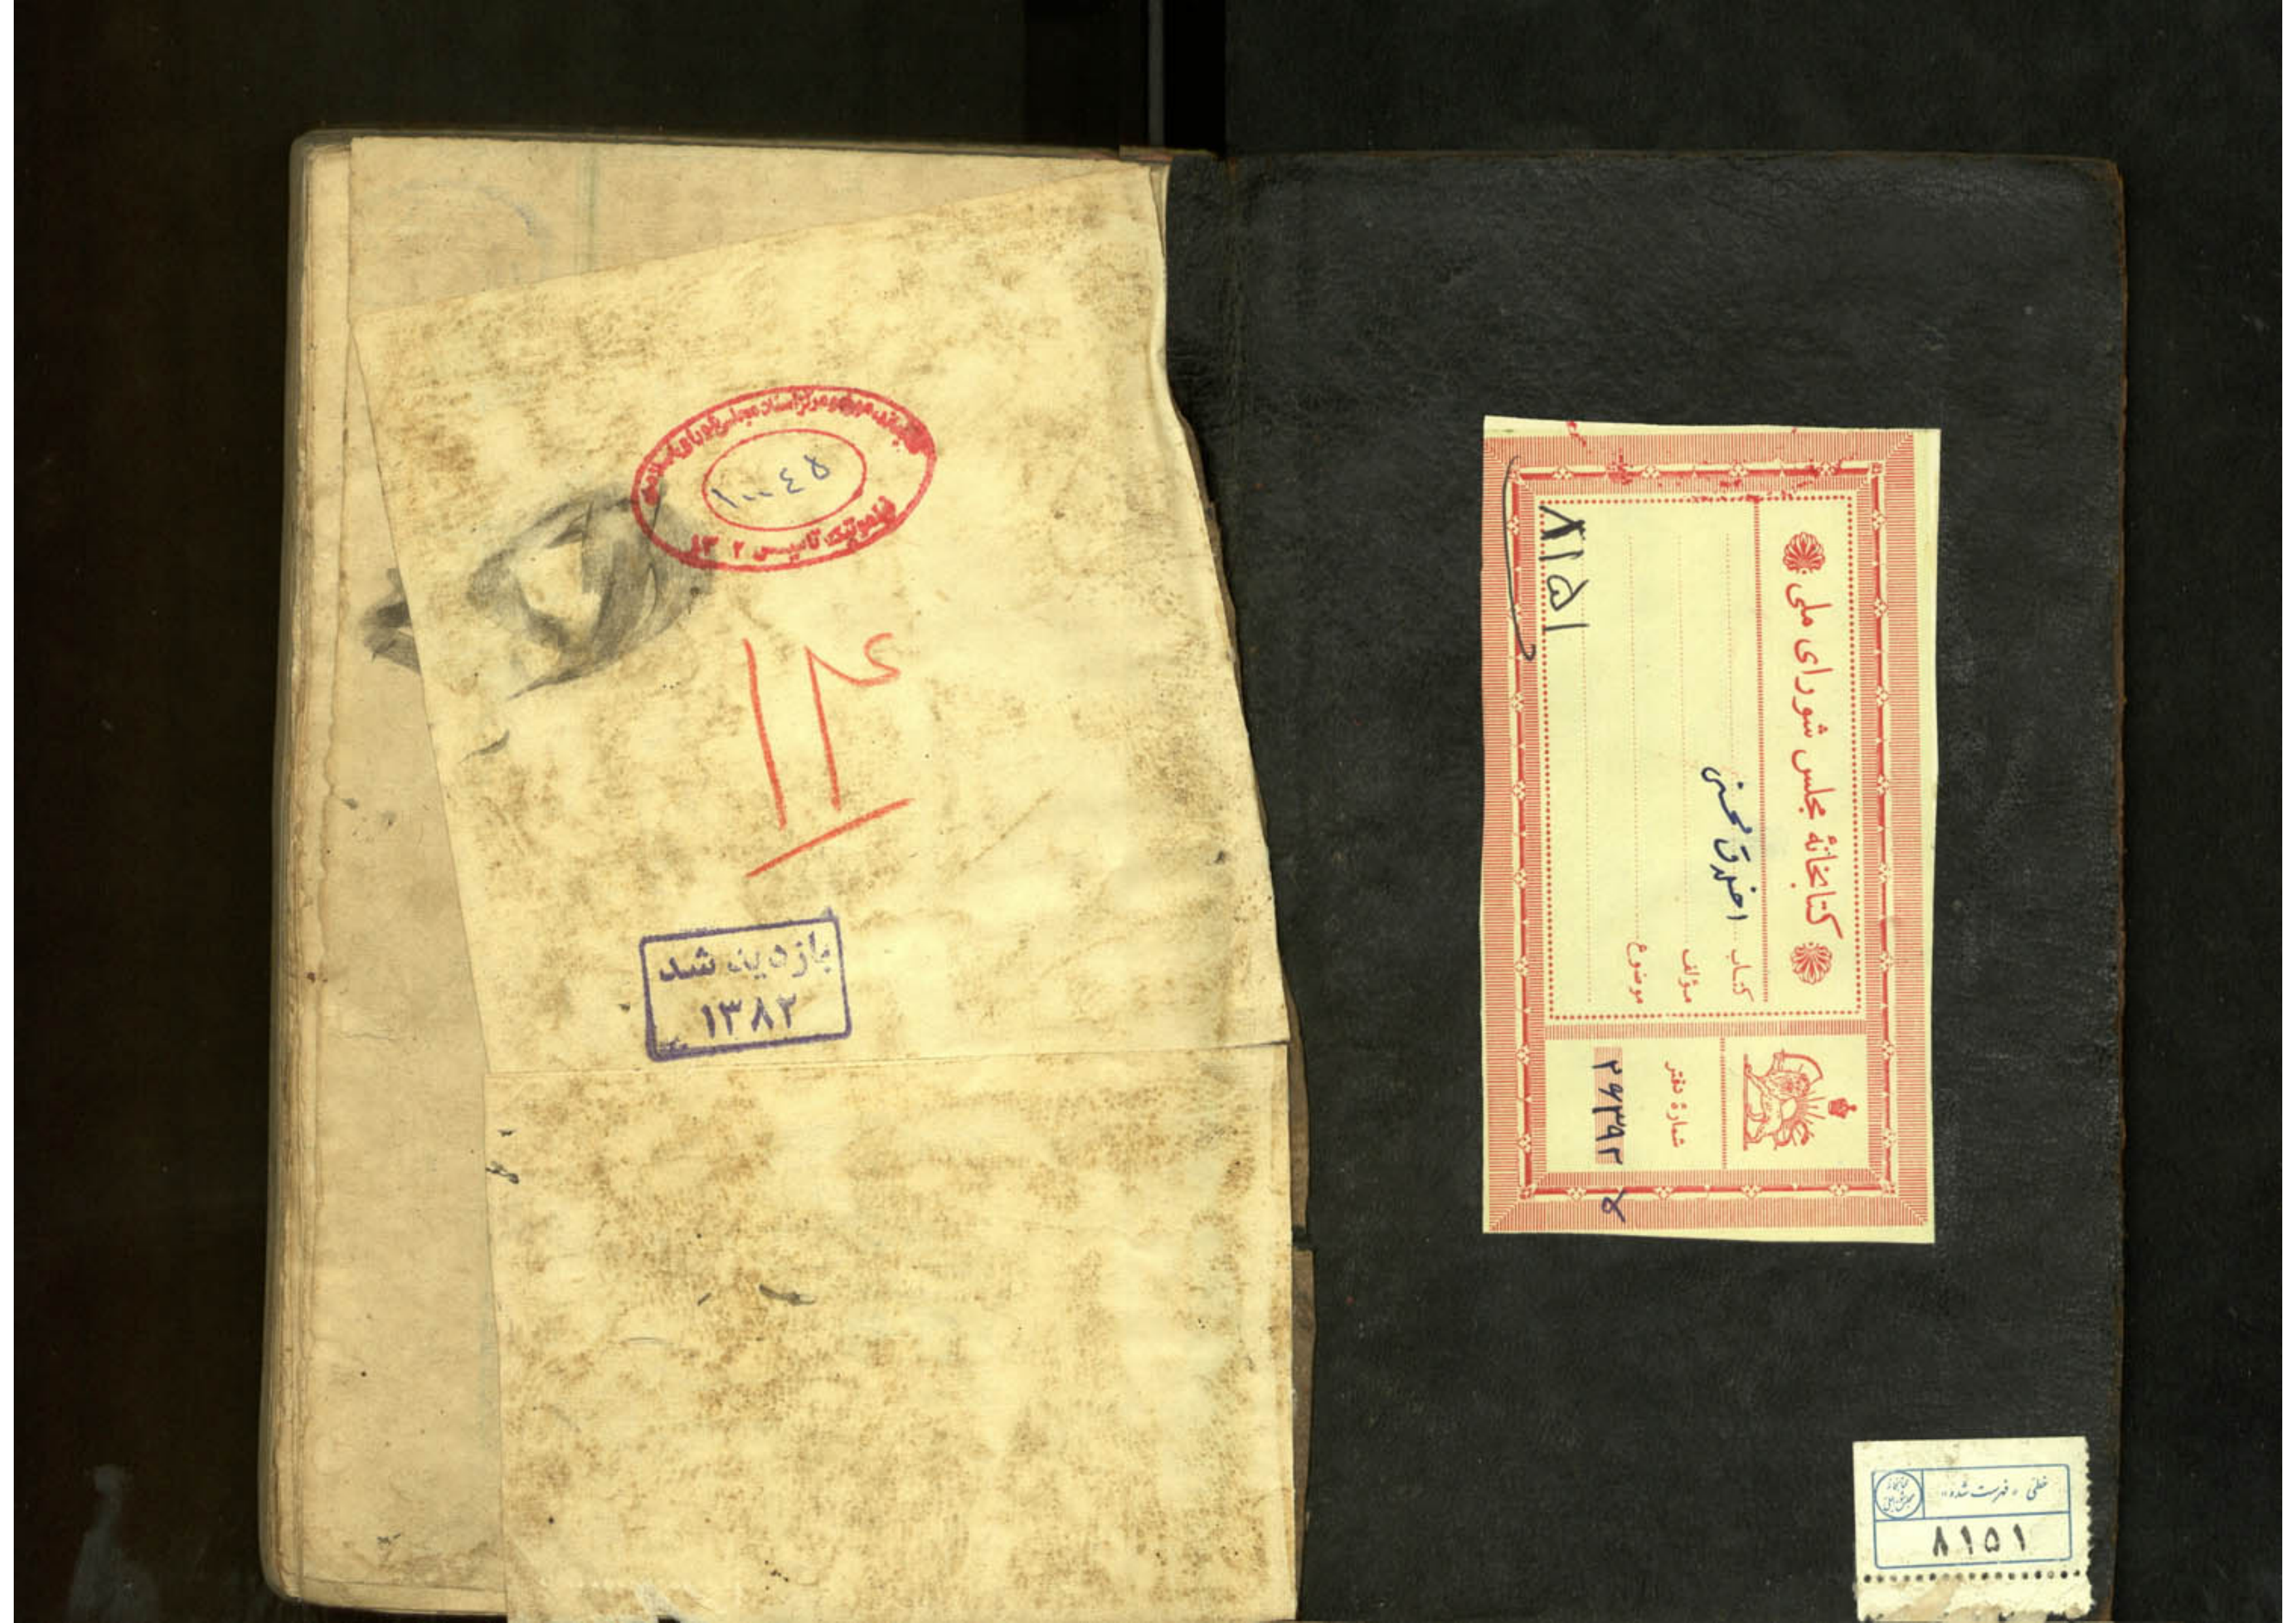 کتابخانه مجلس شورای ملی
کتاب اخلاق محسنی
مؤلف
موضوع
شماره دفتر
۲۶۳۹۲
۸۱۵۱
خطی « فهرست شده »
۸۱۵۱
۱۰۰۴۵
تأسیس ۱۳۰۲
بازدید شد
۱۳۸۲